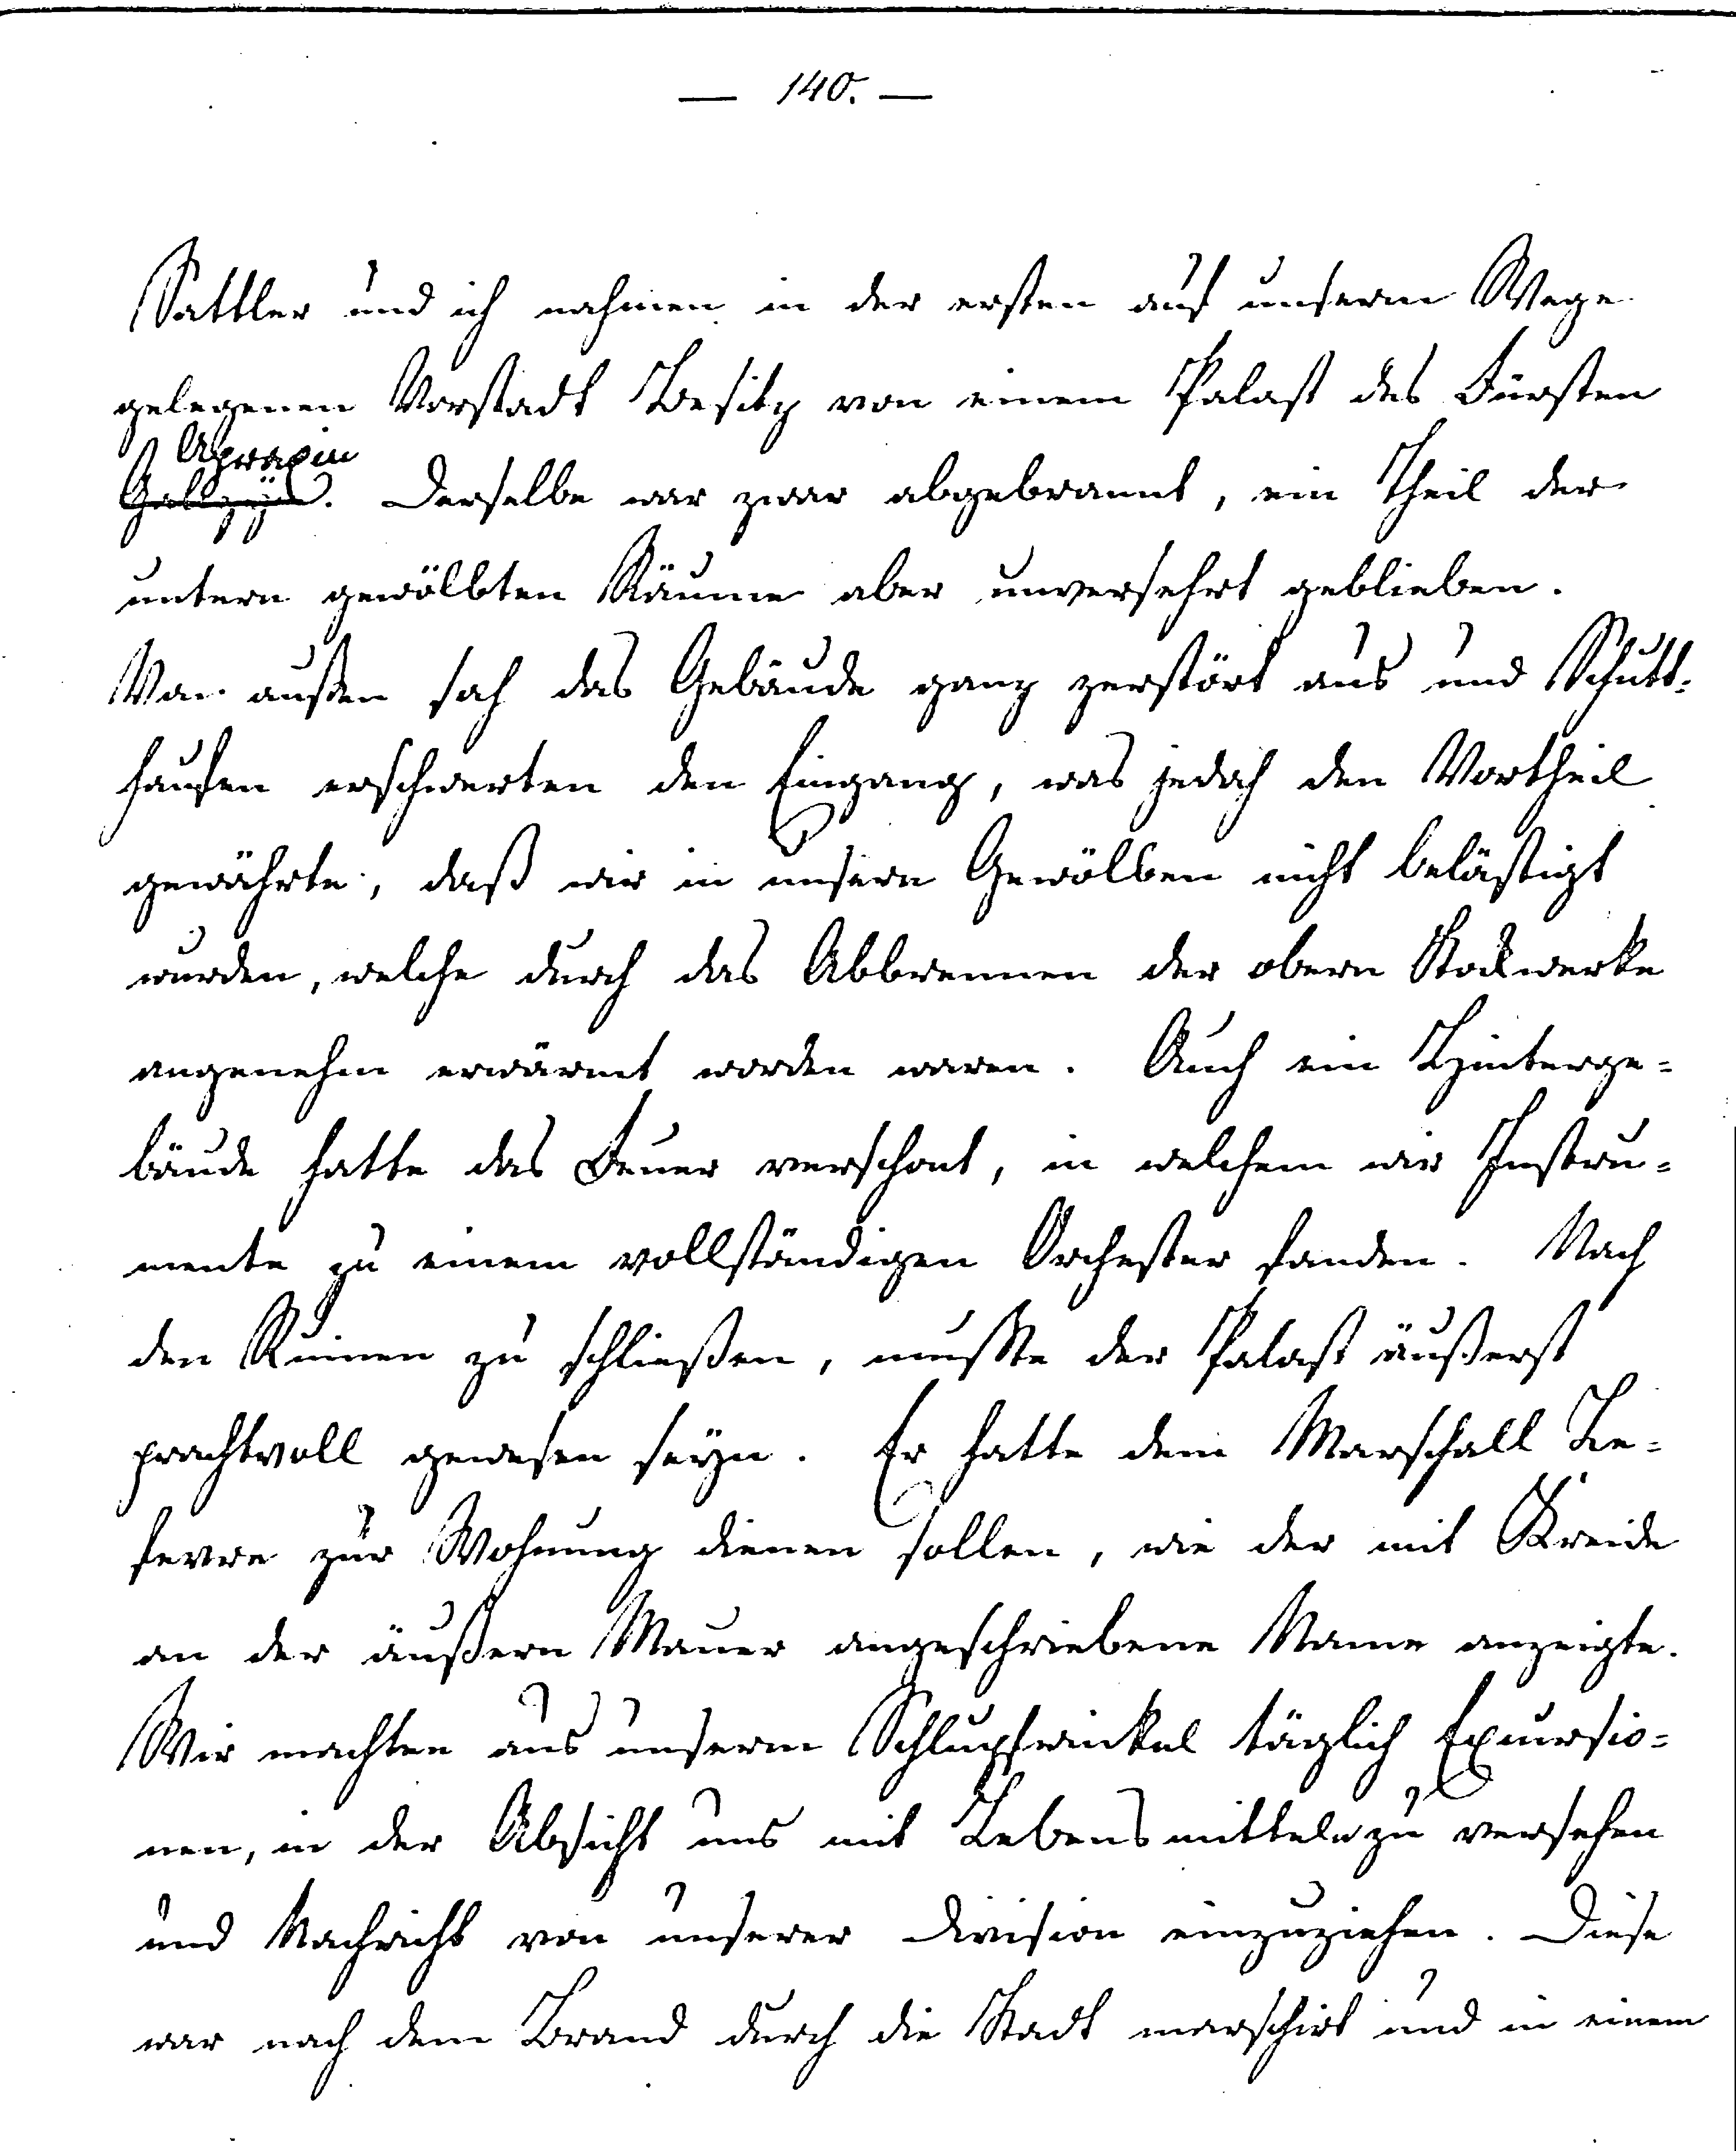 — 140. —
Sattler und ich nahmen in der ersten auf unserm Wege
gelegenen Vorstadt Besitz von einem Palast des Fürsten
Apraxin
Gallizyn. Derselbe war zwar abgebrannt, ein Theil der
untern gewölbten Räume aber unversehrt geblieben.
Von außen sah das Gebäude ganz zerstört aus und Schutt-
haufen erschwerten den Eingang, was jedoch den Vortheil
gewährte, daß wir in unsern Gewölben nicht belästigt
wurden, welche durch das Abbrennen der obern Stockwerke
angenehm erwärmt worden waren. Auch ein Hinterge=
bäude hatte das Feuer verschont, in welchem wir Instru=
mente zu einem vollständigen Orchester fanden. Nach
den Ruinen zu schließen, mußte der Palast äußerst
prachtvoll gewesen seyn. Er hatte dem Marschall Le=
fevre zur Wohnung dienen sollen, wie der mit Kreide
an der äußern Mauer angeschriebene Name anzeigte.
Wir machten aus unserm Schlupfwinkel täglich Excursio=
nen, in der Absicht uns mit Lebensmitteln zu versehen
und Nachricht von unserer Division einzuziehen. Diese
war nach dem Brand durch die Stadt marschirt und in einem